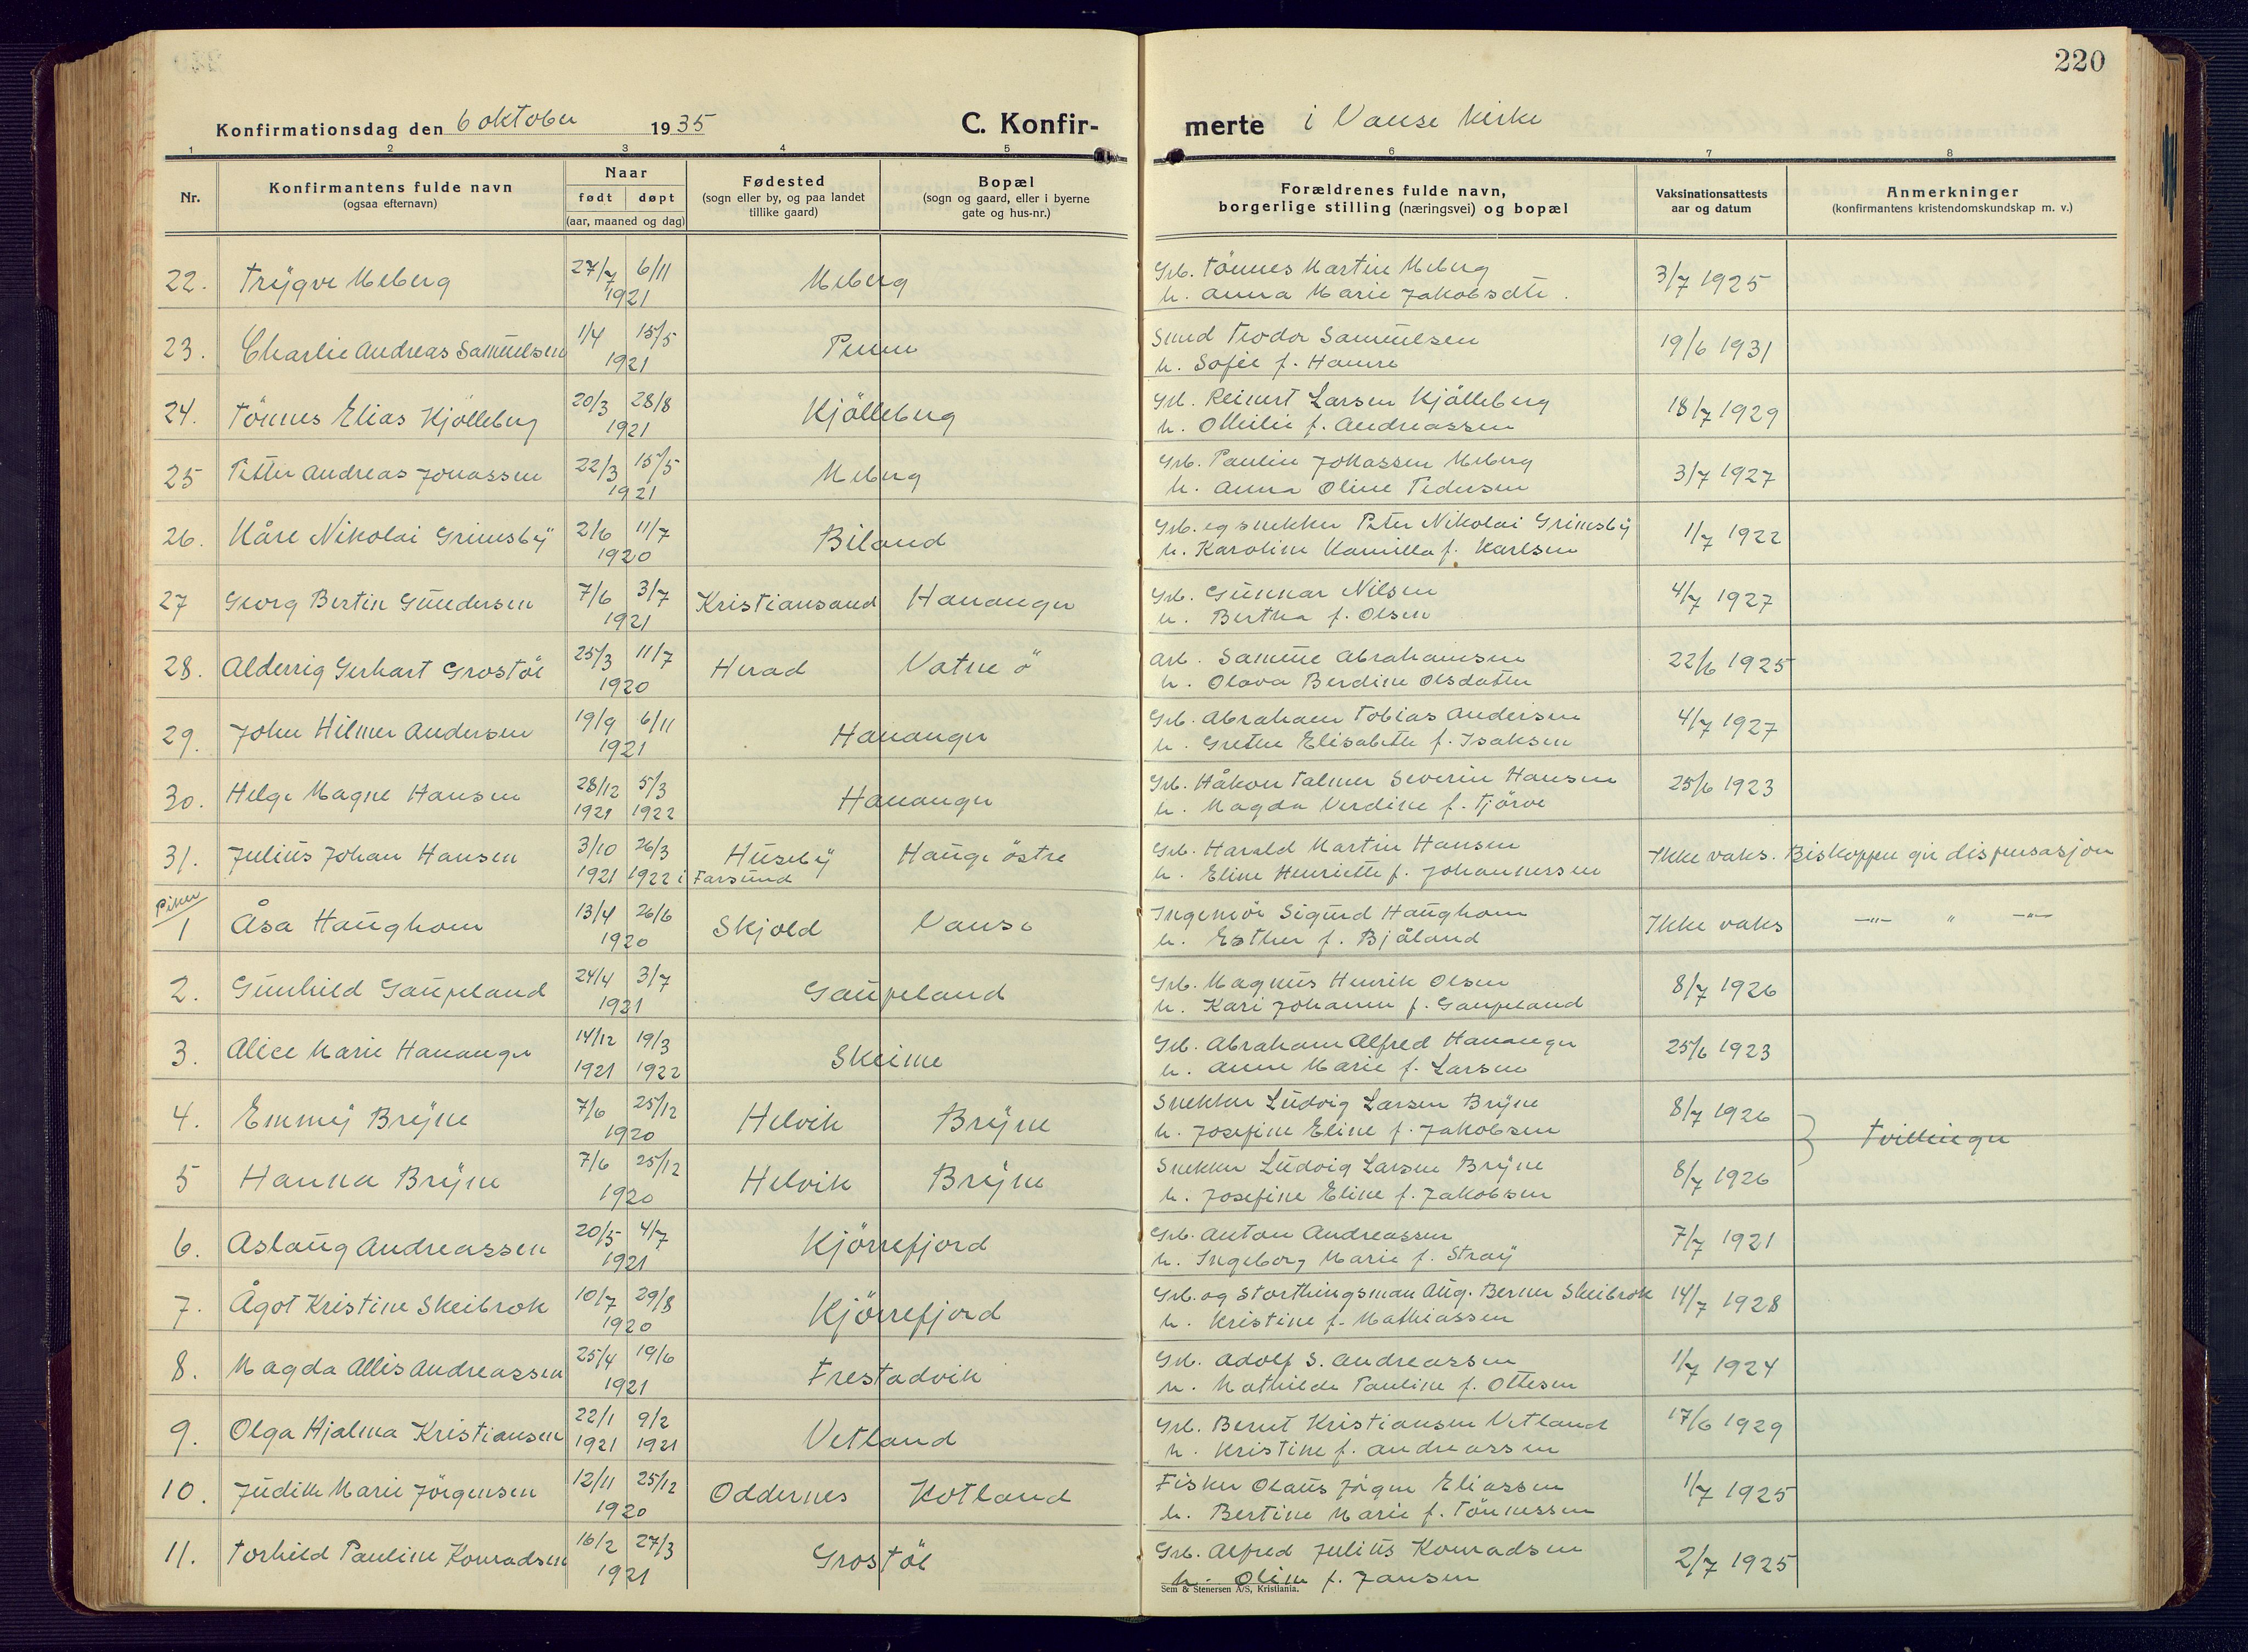 220
Konfirmationsdag den 6 oktober 1935 C. Konfir-
merte i Vanse kirke
1 2 3 4 5 6 7 8
Nr. Konfirmantens fulde navn (ogsaa efternavn) Naar født døpt (aar, maaned og dag) Fødested (sogn eller by, og paa landet tillike gaard) Bopæl (sogn og gaard, eller i byerne gate og hus-nr.) Forældrenes fulde navn, borgerlige stilling (næringsvei) og bopæl Vaksinationsattests aar og datum Anmerkninger (konfirmantens kristendomskundskap m. v.)
22. Trygve Meberg 27/7 6/11 1921 Meberg Grb. Tönnes Martin Meberg 3/7 1925
h. Anna Marie Jakobsdtr.
23. Charlie Andreas Samuelsen 1/4 15/5 1921 Penne Smed Teodor Samuelsen 19/6 1931
h. Sofie f. Hamre
24. Tönnes Elias Kjölleberg 20/3 28/8 1921 Kjölleberg Grb. Reinert Larsen Kjölleberg 18/7 1929
h. Otteilie f. Andreassen
25 Petter Andreas Jonassen 22/3 15/5 1921 Meberg Grb. Paulin Jonassen Meberg 3/7 1927
h. Anna Oline Pedersen
26. Kåre Nikolai Grimsby 2/6 11/7 1920 Biland Grb. og snekker Peter Nikolai Grimsby 1/7 1922
h. Karoline Kamilla f. Karlsen
27 Georg Bertin Gundersen 7/6 3/7 1921 Kristiansand Hananger Grb. Gunnar Nilsen 4/7 1927
h. Bertha f. Olsen
28. Alderrig Gerhart Grostöl 25/3 11/7 1920 Herad Vatne ö Arb. Samuel Abrahamsen 22/6 1925
h. Olava Berdine Olsdatter
29. John Hilmer Andersen 19/9 6/11 1921 Hananger Grb. Abraham Tobias Andersen 4/7 1927
h. Grethe Elisabeth f. Isaksen
30. Helge Magne Hansen 28/12 1921 5/3 1922 Hananger Grb. Håkon Talmer Severin Hansen 25/6 1923
h. Magda Verdine f. Tjörve
31. Julius Johan Hansen 3/10 1921 26/3 1922 i Farsund Huseby Hauge östre Grb. Harald Martin Hansen Ikke vaks. Biskoppen gir dispensasjon
h. Eline Henriette f. Johannessen
Piker
1 Åsa Haughom 13/4 26/6 1920 Skjold Vanse Ingeniör Sigurd Haughom Ikke vaks —"— " —"—
h. Esther f. Bjåland
2. Gunhild Gaupeland 24/4 3/7 1921 Gaupeland Grb. Magnus Henrik Olsen 8/7 1926
h. Kari Johanne f. Gaupeland
3. Alice Marie Hananger 14/12 1921 19/3 1922 Skeime Grb. Abraham Alfred Hananger 25/6 1923
h. Anne Marie f. Larsen
4. Emmy Bryne 7/6 25/12 1920 Helvik Bryne Snekker Ludvig Larsen Bryne 8/7 1926
h. Josefine Eline f. Jakobsen Tvillinger
5 Hanna Bryne 7/6 25/12 1920 Helvik Bryne Snekker Ludvig Larsen Bryne 8/7 1926
h. Josefine Eline f. Jakobsen
6. Aslaug Andreassen 20/5 4/7 1921 Kjörrefjord Grb. Anton Andreassen 7/7 1921
h. Ingeborg Marie f. Stray
7. Ågot Kristine Skeibrok 10/7 29/8 1920 Kjörrefjord Grb. og Storthingsman Aug. Berner Skeibrok 14/7 1928
h. Kristine f. Mathiassen
8. Magda Allis Andreassen 25/4 19/6 1921 Frestadvik Grb. Adolf S. Andreassen 1/7 1924
h. Mathilde Pauline f. Ottesen
9. Olga Hjalma Kristiansen 22/1 1921 9/2 1921 Vetland Grb. Bernt Kristiansen Vetland 17/6 1929
h. Kristine f. Andreassen
10. Judith Marie Jörgensen 12/11 25/12 1920 Oddernes Kotland Fisker Olaus Jörgen Eliassen 1/7 1925
h. Bertine Marie f. Tönnessen
11. Torhild Pauline Konradsen 16/2 27/3 1921 Grostöl Grb. Alfred Julius Konradsen 2/7 1925
h. Oline f. Jansen
Sem & Stenersen A/S, Kristiania.